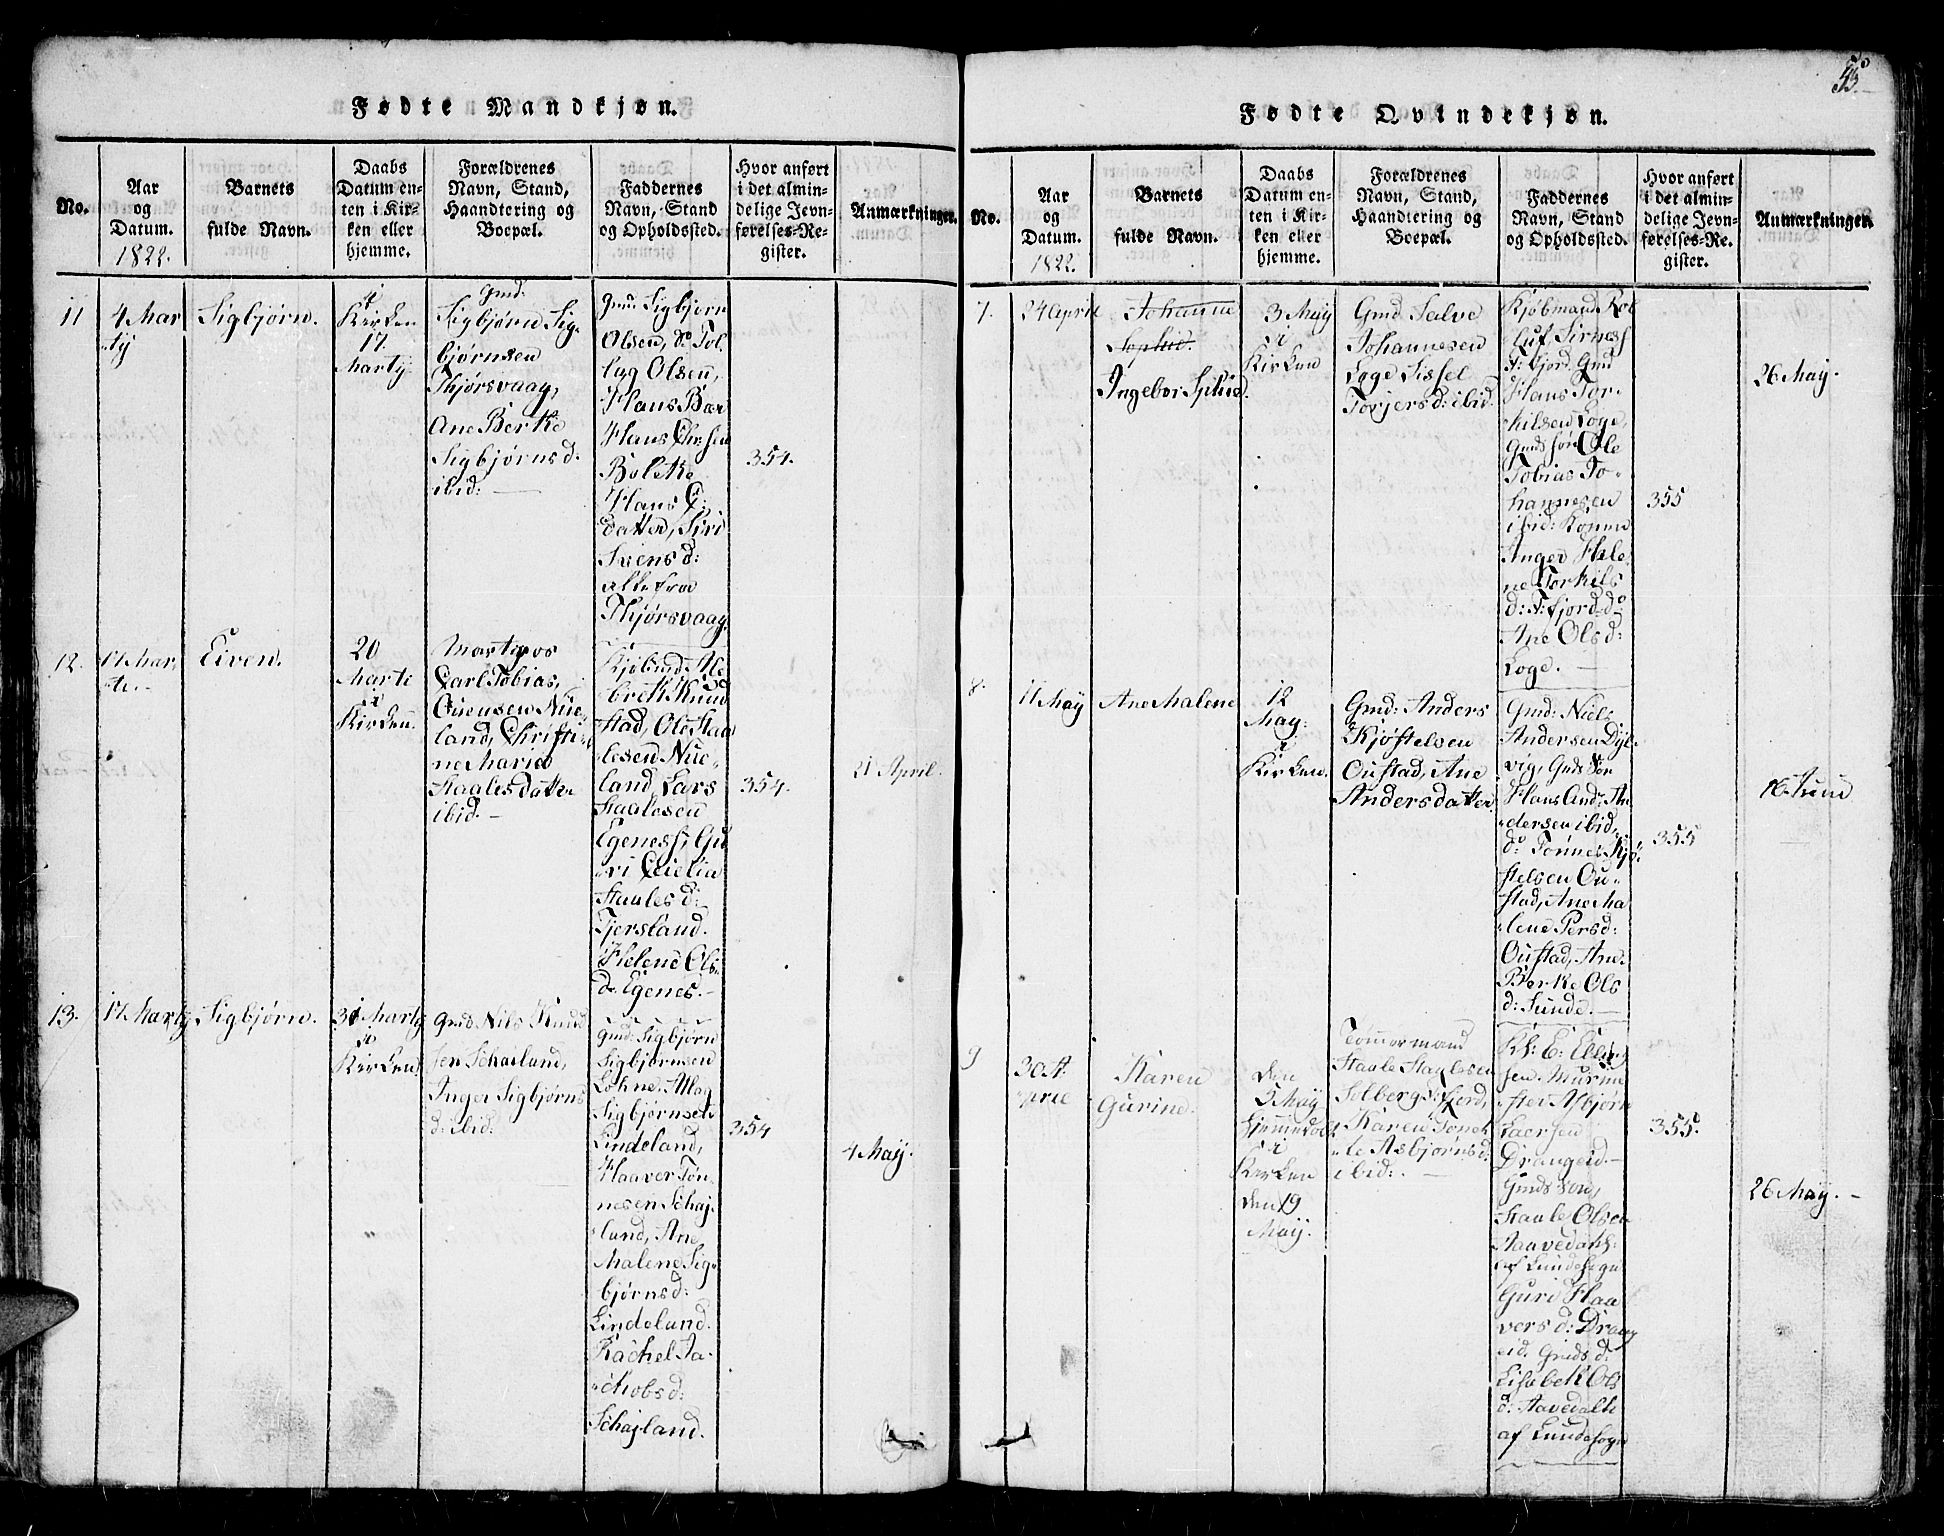 Fødte Mandkjøn.
No.
Aar
og
Datum.
1822.
Barnets
fulde Navn.
Daabs
Datum en-
ten i Kir-
ken eller
hjemme.
Forældrenes
Navn, Stand,
Haandtering og
Boepæl.
Faddernes
Navn, Stand
og Opholdssted.
Hvor anført
i det almin-
delige Jevn-
førelses-Re-
gister.
Anmærkninger.
11
4 Mar
ty
Sigbjørn.
i
Kirken
17
Marty
gmd.
Sigbjørn Sig
bjørnsen
Thjørsvaag,
Ane Berte
Sigbjørnsd.
ibid:
gmd: Sigbjørn
Olsen, do Tol
lag Olsen,
Hans
Hans
Bolette
Hans
datter, Siri
Svensd:
alle fra
Thjørsvaag.
354.
12.
17 Mar,
ti.
Eiven.
20
Marti
i
Kirken
Carl Tobias,
Land, Christi
ne Marie
Staalesdatter
ibid.
brekt Knud
stad, Ole Staa
lesen Nue
land, Lars
Staalesen
Egeness, Gu
ri Cecilia
Staalesd:
Tjersland.
Helene Ols
d: Egenes.
354.
21 April.
13.
17 Marty
Sigbjørn.
31 Marty
i
Kirken
Gmd Nils Knud
sen Schailand,
Inger Sigbjørns
d: ibid.
gmd: Sigbjørn
Sigbjørnsen
Sigbjørnsen
Lindeland,
Haaver Tøn
nesen Schaj
land, Ane
Malene Sig
bjørnsd:
Lindeland.
Rachel Ja
chobsd:
Schajland.
354
4 May.
55.
Fødte Qvindekjøn.
No.
Aar
og
Datum.
1822.
Barnets
fulde Navn.
Daabs
Datum en-
ten i Kir-
ken eller
hjemme.
Forældrenes
Navn, Stand,
Haandtering og
Boepæl.
Faddernes
Navn, Stand
og Opholdssted.
Hvor anført
i det almin-
delige Jevn-
førelses-Re-
gister.
Anmærkninger.
7.
24 April
Johanne
Sophie.
Ingebor
3 May
i
Kirken
Gmd Salve
Johannesen
Loge Sissel
Torjersd: ibid.
Kjøbmand
Gmd
Hans Tor
kilsen Loge,
Ole
Tobias Jo
hannesen
ibid: Konen
Anger Hele
ne Torkils
d: A: fjord. do
Ane Olsd:
Loge.
355
26 May.
8.
11 May
Ane Malene
12
May:
i
Kirken.
Gmd: Anders
Kjøstelsen
Oustad, Ane
Andersdatter
Gmd: Niels
Andersen Dyb
vig, Gmds Søn
Hans And: An
dersen ibid,
do Tønnes Kjø
stelsen Ou
stad, Ane Ma
lene Persd:
Oustad, Ane
Berte Ols
d: Sunde.
355
16 Juni
9
30 A
pril
Karen
Gurine.
Den
5 May
Hjemmedøbt
i
Kirken
den 19
May.
Tømmermand
Staale Staalesen
Solbergs fjord,
Karen Tonet
te Asbjørnsd:
ibid:
ster Asbjørn
Laersen
Drangeid.
Gmds Søn,
Staale Olsen
Aavedahl
af Lunde sogn
Guri Haa
versd: Drang
eid. Gmds d:
Lisabet Ols
d: Aavedahl
af Lunde sogn
355.
26 May.